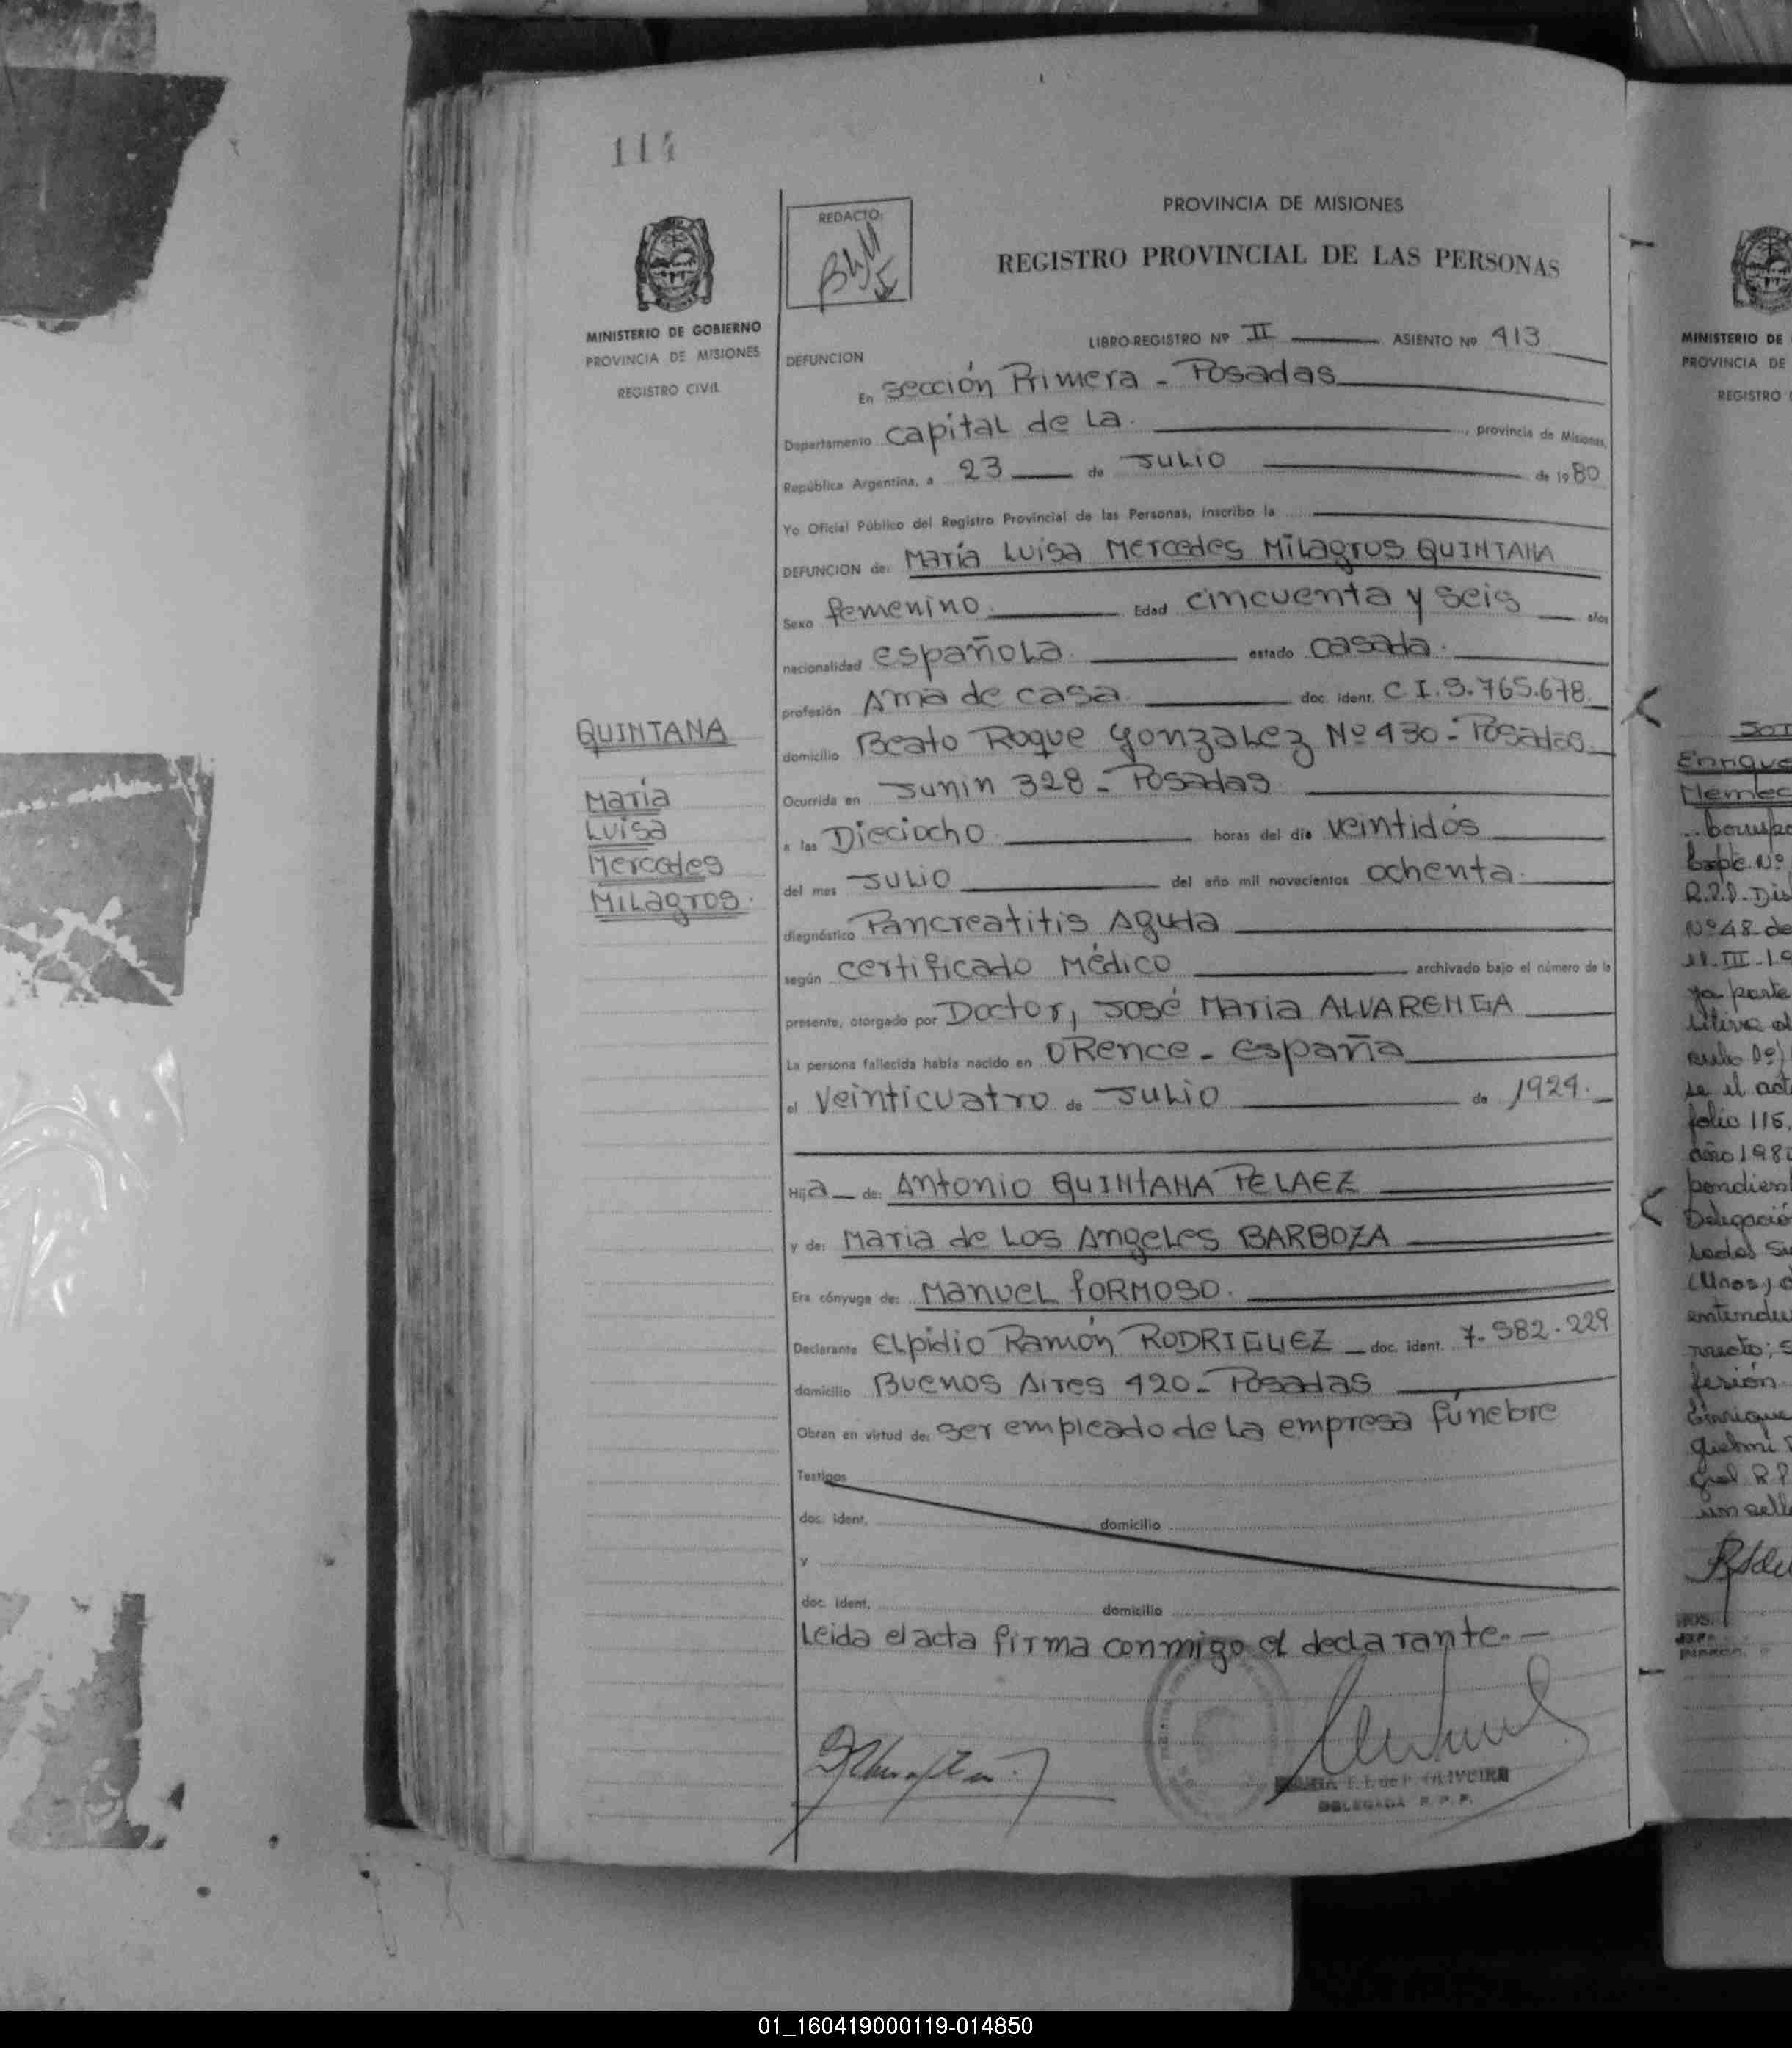 114
REDACTO:
PROVINCIA DE MISIONES
REGISTRO PROVINCIAL DE LAS PERSONAS
MINISTERIO DE GOBIERNO
PROVINCIA DE MISIONES
REGISTRO CIVIL
LIBRO-REGISTRO Nº II ASIENTO Nº 413
DEFUNCION
En sección Primera - Posadas
Departamento capital de la provincia de Misiones,
República Argentina, a 23 de Julio de 1980
Yo Oficial Público del Registro Provincial de las Personas, inscribo la
DEFUNCION de: María Luisa Mercedes Milagros QUINTANA
Sexo femenino Edad cincuenta y seis años
nacionalidad española estado casada.
profesión Ama de casa doc. ident. C.I. 9.765.678.
QUINTANA
María
Luisa
Mercedes
Milagros.
domicilio Beato Roque Gonzalez Nº 430 - Posadas.
Ocurrida en Junin 328 - Posadas
a las Dieciocho horas del día veintidós
del mes Julio del año mil novecientos ochenta.
diagnóstico Pancreatitis Aguda
según certificado Médico archivado bajo el número de la
presente, otorgado por Doctor, José Maria ALVARENGA
La persona fallecida había nacido en ORence - españa
el veinticuatro de Julio de 1924.
Hija de: Antonio QUINTANA PELAEZ
y de: Maria de Los Angeles BARBOZA
Era cónyuge de: Manuel FORMOSO.
Declarante Elpidio Ramón RODRIGUEZ doc. ident. 7.582.229
domicilio Buenos Aires 420 - Posadas
Obran en virtud de: ser empleado de la empresa fúnebre
Testigos
doc. ident. domicilio
y
doc. ident. domicilio
Leida el acta firma conmigo el declarante.
OLIVEIRA
DELEGADA R. P. P.
MINISTERIO DE
PROVINCIA DE
REGISTRO
Enrique
Nº 48 de
ya parte
se el acta
folio 115,
año 198
Delegació
fesión
Enrique
01_160419000119-014850